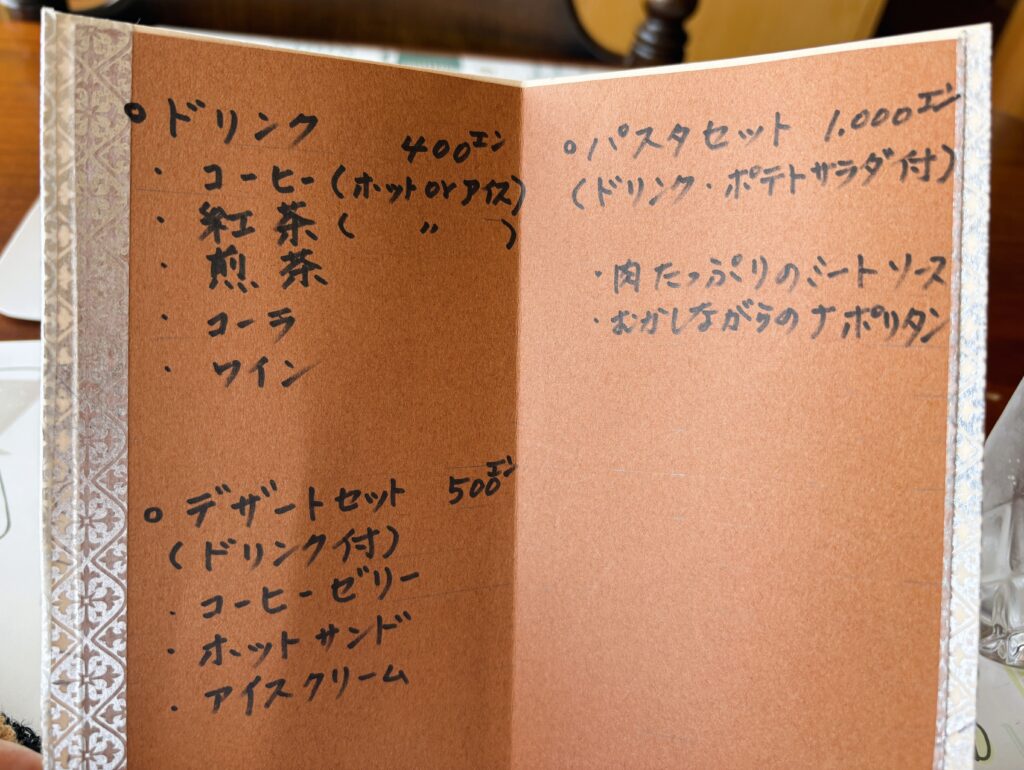 ○ ドリンク 400エン
・コーヒー(ホットorアイス)
・紅茶( 〃 )
・煎茶
・コーラ
・ワイン
○ デザートセット 500エン
(ドリンク付)
・コーヒーゼリー
・ホットサンド
・アイスクリーム
○パスタセット 1.000エン
(ドリンク・ポテトサラダ付)
・肉たっぷりのミートソース
・むかしながらのナポリタン